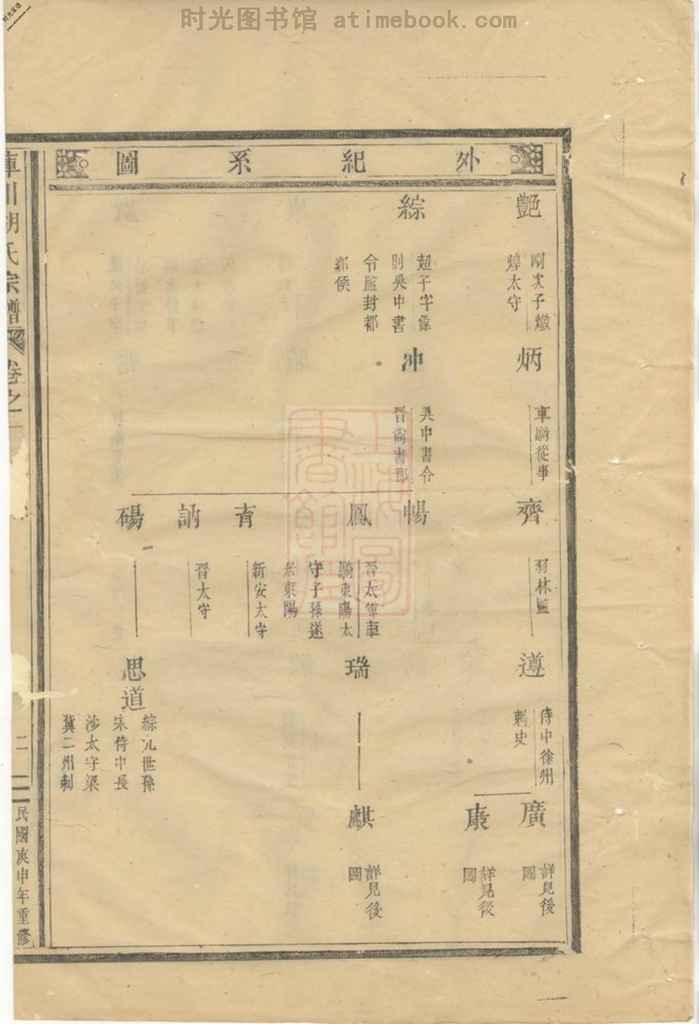 时光图书馆 atimebook.com
外紀系圖
艷
剛次子燉
煌太守
炳
車騎從事
齊
羽林監
遵
侍中徐州
刺史
廣
詳見後
圖
康
詳見後
圖
綜
超子字偉
則吳中書
令監封都
鄉侯
冲
吳中書令
晉尚書郎
暢
鳳
晉太常車
騎東陽太
守子孫遂
家東陽
瑞
麒
詳見後
圖
育
新安太守
訥
晉太守
碭
思道
綜九世孫
宋侍中長
沙太守梁
冀二州刺
川胡氏宗譜
卷之
二
民國庚申年重修